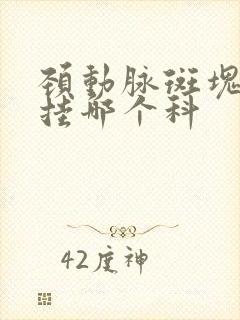 頚動脉斑塊
挂那个科
42度神